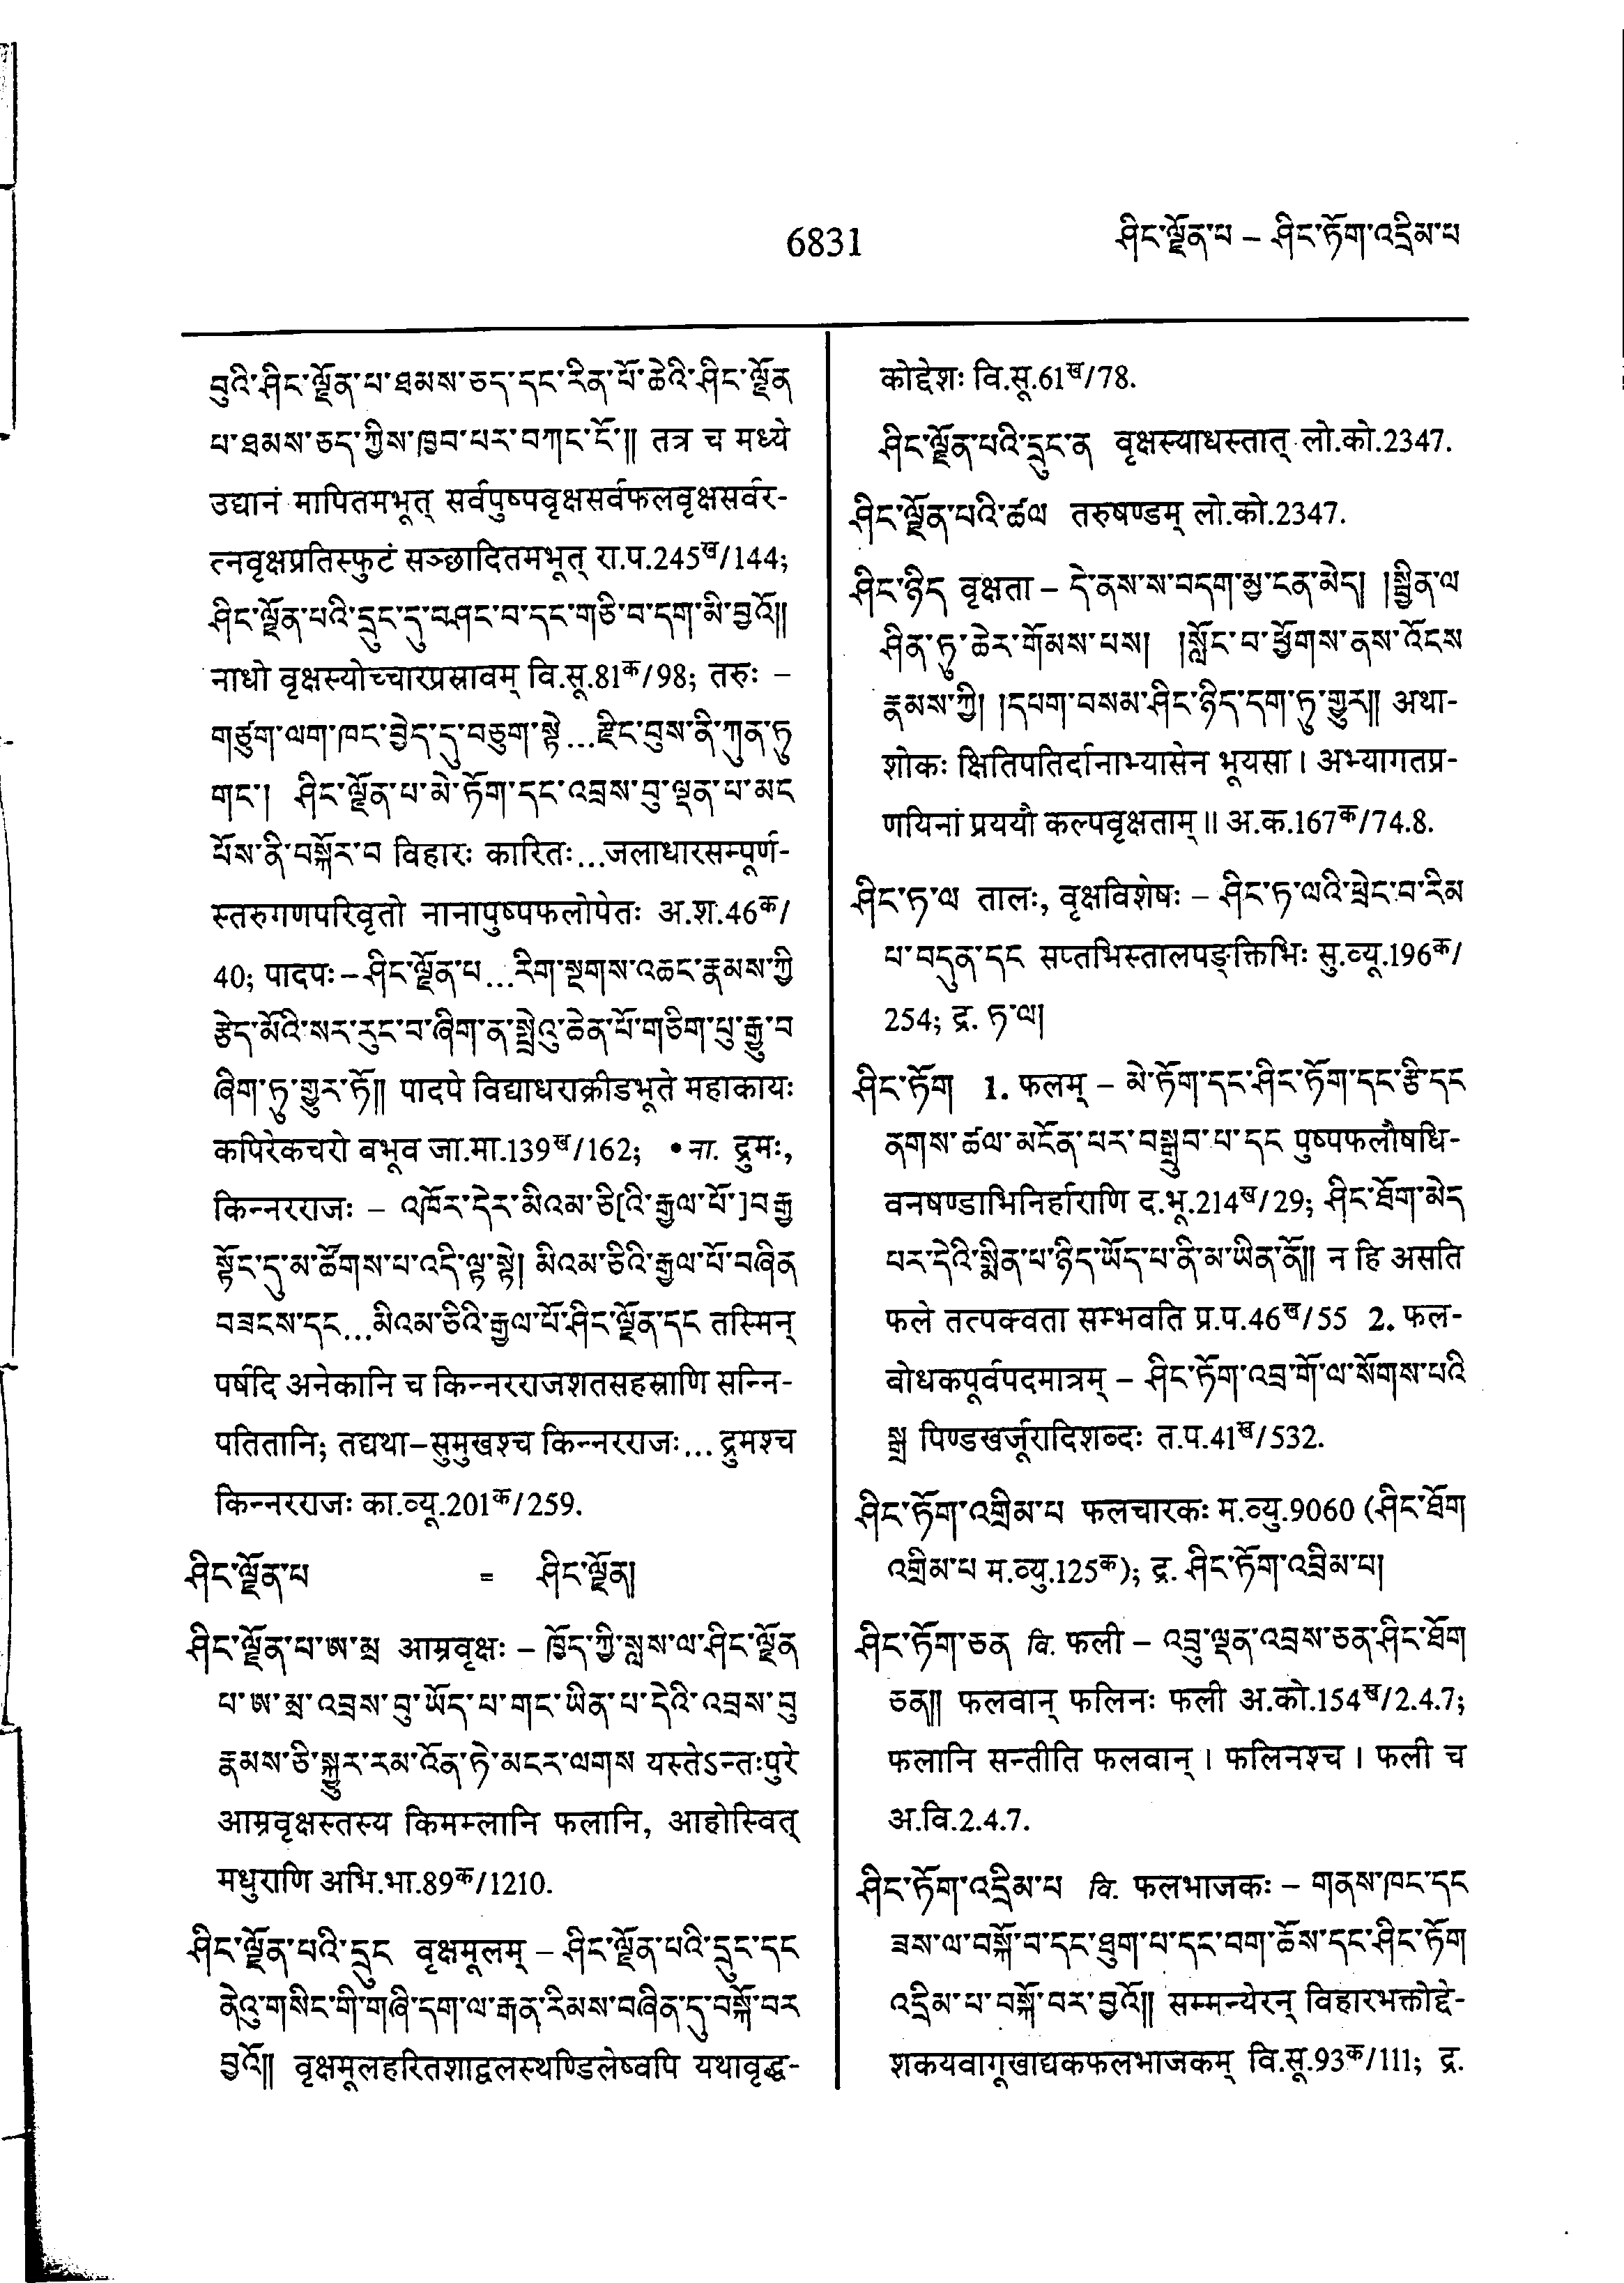 6831
ཤིང་ལྗོན་པ – ཤིང་ཏོག་འདྲིམ་པ
བུའི་ཤིང་ལྗོན་པ་ཐམས་ཅད་དང་རིན་པོ་ཆེའི་ཤིང་ལྗོན
པ་ཐམས་ཅད་ཀྱིས་ཁྱབ་པར་བཀང་ངོ་།། तत्र च मध्ये
उद्यानं मापितमभूत् सर्वपुष्पवृक्षसर्वफलवृक्षसर्वर-
त्नवृक्षप्रतिस्फुटं सञ्छादितमभूत् रा.प.245ख/144;
ཤིང་ལྗོན་པའི་དྲུང་དུ་བཤང་བ་དང་གཅི་བ་དག་མི་བྱའོ།།
नाधो वृक्षस्योच्चारप्रस्रावम् वि.सू.81क/98; तरुः –
གཙུག་ལག་ཁང་བྱེད་དུ་བཅུག་སྟེ...རྫིང་བུས་ནི་ཀུན་ཏུ
གང་། ཤིང་ལྗོན་པ་མེ་ཏོག་དང་འབྲས་བུ་ལྡན་པ་མང
པོས་ནི་བསྐོར་བ विहारः कारितः...जलाधारसम्पूर्ण-
स्तरुगणपरिवृतो नानापुष्पफलोपेतः अ.श.46क/
40; पादपः – ཤིང་ལྗོན་པ...རིག་སྔགས་འཆང་རྣམས་ཀྱི
རྩེད་མོའི་སར་རུང་བ་ཞིག་ན་སྤྲེའུ་ཆེན་པོ་གཅིག་པུ་རྒྱུ་བ
ཞིག་ཏུ་གྱུར་ཏོ།། पादपे विद्याधराक्रीडभूते महाकायः
कपिरेकचरो बभूव जा.मा.139ख/162; • ना. द्रुमः,
किन्नरराजः – འཁོར་དེར་མིའམ་ཅི[འི་རྒྱལ་པོ་]བརྒྱ
སྟོང་དུ་མ་ཚོགས་པ་འདི་ལྟ་སྟེ། མིའམ་ཅིའི་རྒྱལ་པོ་བཞིན
བཟངས་དང...མིའམ་ཅིའི་རྒྱལ་པོ་ཤིང་ལྗོན་དང तस्मिन्
पर्षदि अनेकानि च किन्नरराजशतसहस्राणि सन्नि-
पतितानि; तद्यथा–सुमुखश्च किन्नरराजः... द्रुमश्च
किन्नरराजः का.व्यू.201क/259.
ཤིང་ལྗོན་པ = ཤིང་ལྗོན།
ཤིང་ལྗོན་པ་ཨ་མྲ आम्रवृक्षः – ཁྱོད་ཀྱི་སླས་ལ་ཤིང་ལྗོན
པ་ཨ་མྲ་འབྲས་བུ་ཡོད་པ་གང་ཡིན་པ་དེའི་འབྲས་བུ
རྣམས་ཅི་སྐྱུར་རམ་འོན་ཏེ་མངར་ལགས यस्तेऽन्तःपुरे
आम्रवृक्षस्तस्य किमम्लानि फलानि, आहोस्वित्
मधुराणि अभि.भा.89क/1210.
ཤིང་ལྗོན་པའི་དྲུང वृक्षमूलम् – ཤིང་ལྗོན་པའི་དྲུང་དང
ནེའུ་གསིང་གི་གཞི་དག་ལ་རྒན་རིམས་བཞིན་དུ་བསྐོ་བར
བྱའོ།། वृक्षमूलहरितशाद्वलस्थण्डिलेष्वपि यथावृद्ध-
कोद्देशः वि.सू.61ख/78.
ཤིང་ལྗོན་པའི་དྲུང་ན वृक्षस्याधस्तात् लो.को.2347.
ཤིང་ལྗོན་པའི་ཚལ तरुषण्डम् लो.को.2347.
ཤིང་ཉིད वृक्षता – དེ་ནས་ས་བདག་མྱ་ངན་མེད། །སྦྱིན་ལ
ཤིན་ཏུ་ཆེར་གོམས་པས། །སློང་བ་ཕྱོགས་ནས་འོངས
རྣམས་ཀྱི། །དཔག་བསམ་ཤིང་ཉིད་དག་ཏུ་གྱུར།། अथा-
शोकः क्षितिपतिर्दानाभ्यासेन भूयसा । अभ्यागतप्र-
णयिनां प्रययौ कल्पवृक्षताम् ॥ अ.क.167क/74.8.
ཤིང་ཏ་ལ तालः, वृक्षविशेषः – ཤིང་ཏ་ལའི་ཕྲེང་བ་རིམ
པ་བདུན་དང सप्तभिस्तालपङ्क्तिभिः सु.व्यू.196क/
254; द्र. ཏ་ལ།
ཤིང་ཏོག 1. फलम् – མེ་ཏོག་དང་ཤིང་ཏོག་དང་རྩི་དང
ནགས་ཚལ་མངོན་པར་བསྒྲུབ་པ་དང पुष्पफलौषधि-
वनषण्डाभिनिर्हाराणि द.भू.214ख/29; ཤིང་ཐོག་མེད
པར་དེའི་སྨིན་པ་ཉིད་ཡོད་པ་ནི་མ་ཡིན་ནོ།། न हि असति
फले तत्पक्वता सम्भवति प्र.प.46ख/55 2. फल-
बोधकपूर्वपदमात्रम् – ཤིང་ཏོག་འབྲ་གོ་ལ་སོགས་པའི
སྒྲ पिण्डखर्जूरादिशब्दः त.प.41ख/532.
ཤིང་ཏོག་འགྲིམ་པ फलचारकः म.व्यु.9060 (ཤིང་ཐོག
འགྲིམ་པ म.व्यु.125क); द्र. ཤིང་ཏོག་འབྲིམ་པ།
ཤིང་ཏོག་ཅན वि. फली – འབྲུ་ལྡན་འབྲས་ཅན་ཤིང་ཐོག
ཅན།། फलवान् फलिनः फली अ.को.154ख/2.4.7;
फलानि सन्तीति फलवान् । फलिनश्च । फली च
अ.वि.2.4.7.
ཤིང་ཏོག་འདྲིམ་པ वि. फलभाजकः – གནས་ཁང་དང
ཟས་ལ་བསྐོ་བ་དང་ཐུག་པ་དང་བག་ཆོས་དང་ཤིང་ཏོག
འདྲིམ་པ་བསྐོ་བར་བྱའོ།། सम्मन्येरन् विहारभक्तोद्दे-
शकयवागूखाद्यकफलभाजकम् वि.सू.93क/111; द्र.